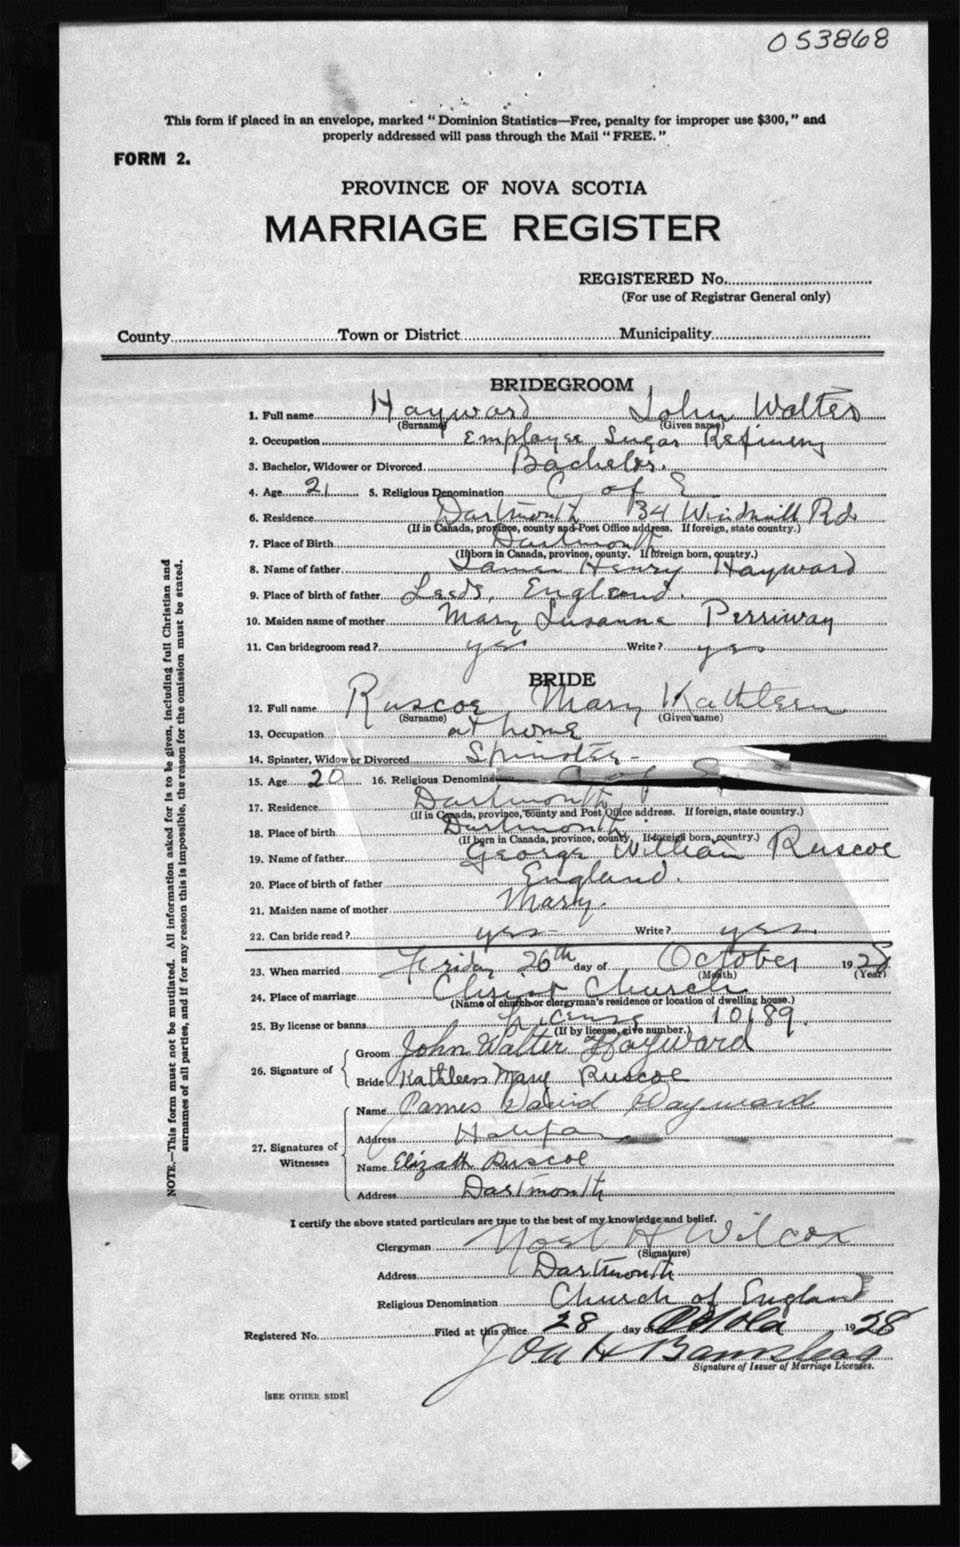 053868
This form if placed in an envelope, marked "Dominion Statistics—Free, penalty for improper use $300," and
properly addressed will pass through the Mail "FREE."
FORM 2.
PROVINCE OF NOVA SCOTIA
MARRIAGE REGISTER
REGISTERED No.
(For use of Registrar General only)
County Town or District Municipality
BRIDEGROOM
1. Full name Hayward John Walter
(Surname) (Given name)
2. Occupation Employee Sugar Refinery
3. Bachelor, Widower or Divorced Bachelor.
4. Age 21 5. Religious Denomination C of E
6. Residence Dartmouth 34 Windmill Rd.
(If in Canada, province, county and Post Office address. If foreign, state country.)
7. Place of Birth Dartmouth
(If born in Canada, province, county. If foreign born, country.)
8. Name of father James Henry Hayward
9. Place of birth of father Leeds, England.
10. Maiden name of mother Mary Susanna Perriway
11. Can bridegroom read? yes Write? yes
BRIDE
12. Full name Ruscoe Mary Kathleen
(Surname) (Given name)
13. Occupation at home
14. Spinster, Widow or Divorced Spinster
15. Age 20 16. Religious Denomin C of E
17. Residence Dartmouth
(If in Canada, province, county and Post Office address. If foreign, state country.)
18. Place of birth Dartmouth
(If born in Canada, province, county. If foreign born, country.)
19. Name of father George William Ruscoe
20. Place of birth of father England.
21. Maiden name of mother Mary.
22. Can bride read? yes Write? yes
23. When married Friday 26th day of October 1928
(Month) (Year)
24. Place of marriage Christ Church
(Name of church or clergyman's residence or location of dwelling house.)
25. By license or banns License 10189.
(If by license, give number.)
26. Signature of
Groom John Walter Hayward
Bride Kathleen Mary Ruscoe
27. Signatures of Witnesses
Name James David Hayward
Address Halifax
Name Elizath Ruscoe
Address Dartmouth
I certify the above stated particulars are true to the best of my knowledge and belief.
Clergyman Noel H Wilcox
(Signature)
Address Dartmouth
Religious Denomination Church of England
Registered No. Filed at this office 28 day of 1928
H
Signature of Issuer of Marriage Licenses.
[SEE OTHER SIDE]
NOTE.—This form must not be mutilated. All information asked for is to be given, including full Christian and
surnames of all parties, and if for any reason this is impossible, the reason for the omission must be stated.